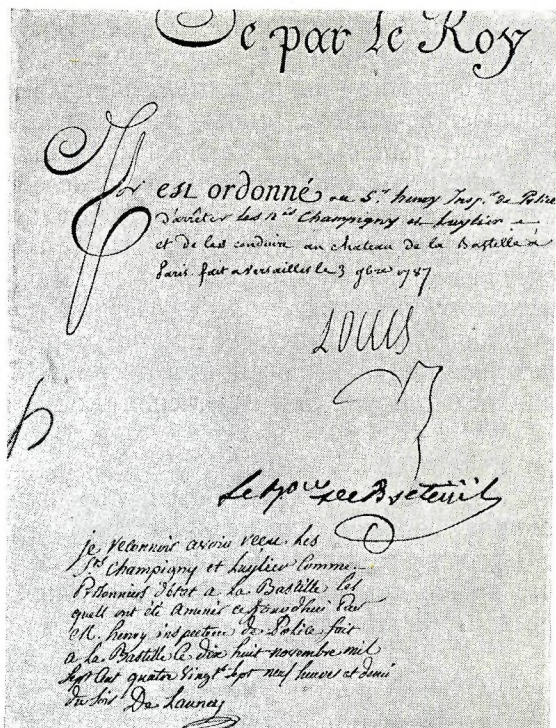 De par Le Roy
Il est ordonné au Sr. henry Insp.r de Police
d'arrêter les n.és Champigny et Luylier
et de les conduire au chateau de la Bastille à
Paris. fait a Versailles le 3 9bre 1787
Louis
Le Bon De Breteüil
je reconnois avoir receu les
Srs Champigny et Luylier Comme
Prisonniers d'état a la Bastille les
quels ont été amenés ce jourdhui Par
M. henry inspecteur de Police fait
a la Bastille Ce dix huit novembre mil
sept cent quatre vingt sept neuf heures et demi
du soir De Launey